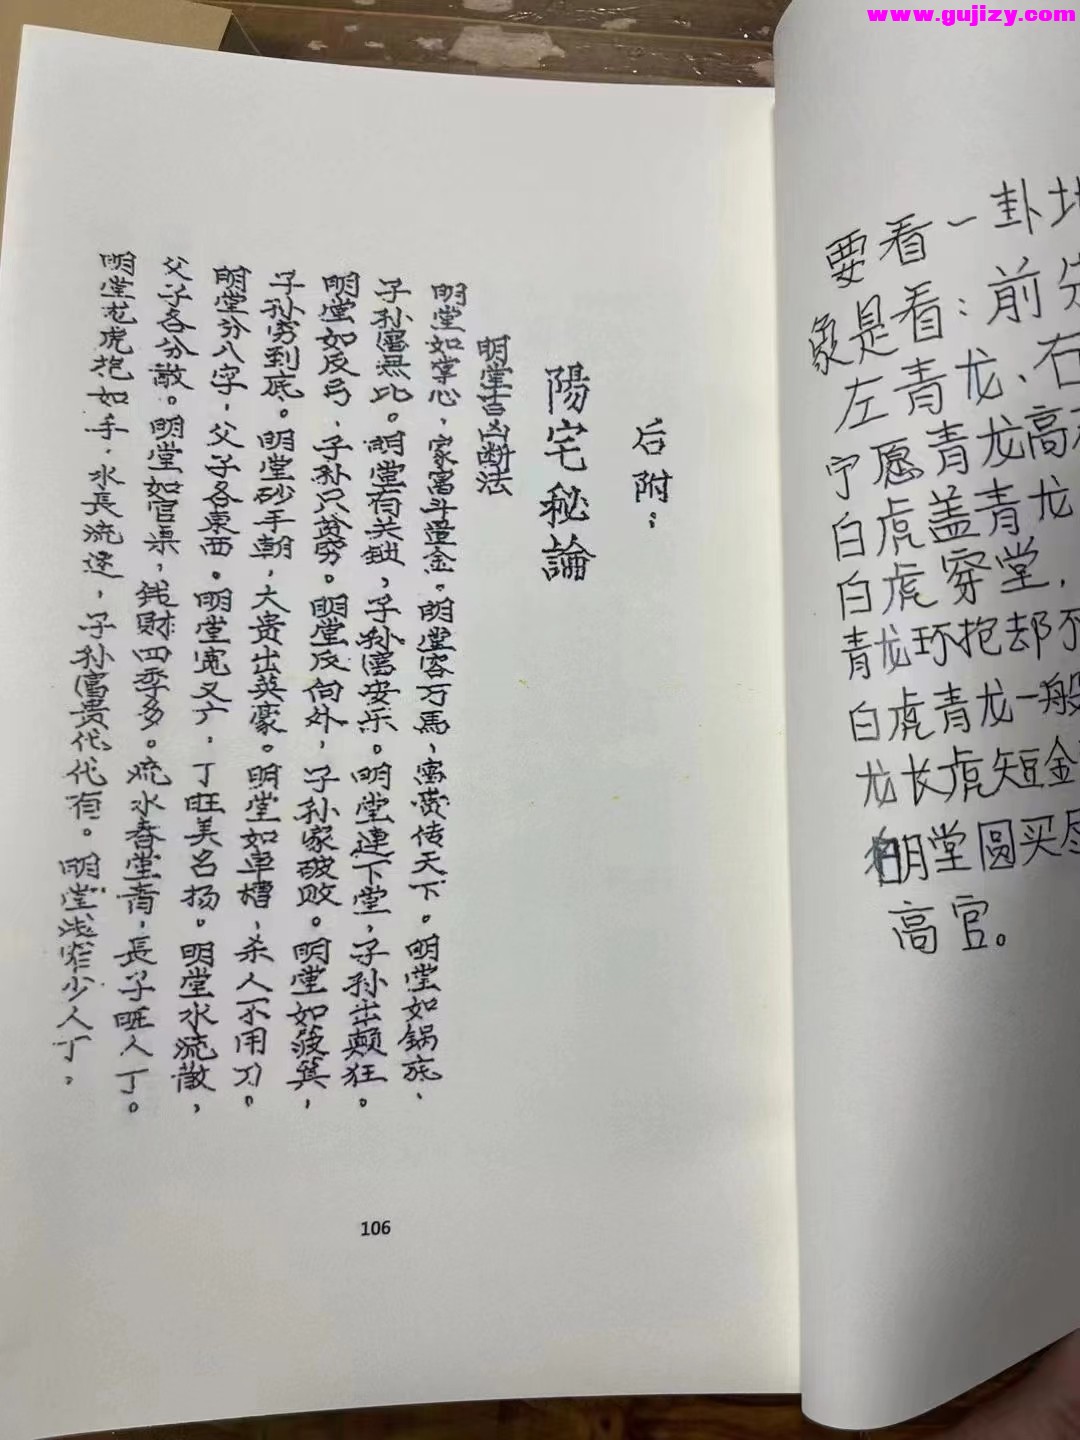 www.gujizy.com
要看一卦
象是看：前
左青龙、右
宁愿青龙高
白虎盖青龙
白虎穿堂，
青龙环抱却不
白虎青龙一般
龙长虎短金
明堂圆买尽
高官。
后附：
陽宅秘論
明堂吉凶断法
明堂如掌心，家富斗量金。明堂容万馬，富贵传天下。明堂如锅底，
子孙富無比。明堂有关鈌，子孙富安乐。明堂連下堂，子孙出颠狂。
明堂如反弓，子孙只贫穷。明堂反向外，子孙家破败。明堂如簸箕，
子孙穷到底。明堂砂手朝，大贵出英豪。明堂如車槽，杀人不用刀。
明堂分八字，父子各東西。明堂宽又广，丁旺美名扬。明堂水流散，
父子各分散。明堂如官渠，銭財四季多。流水春堂前，長子旺人丁。
明堂龙虎抱如手，水長流逺，子孙富贵代代有。明堂浅窄少人丁，
106